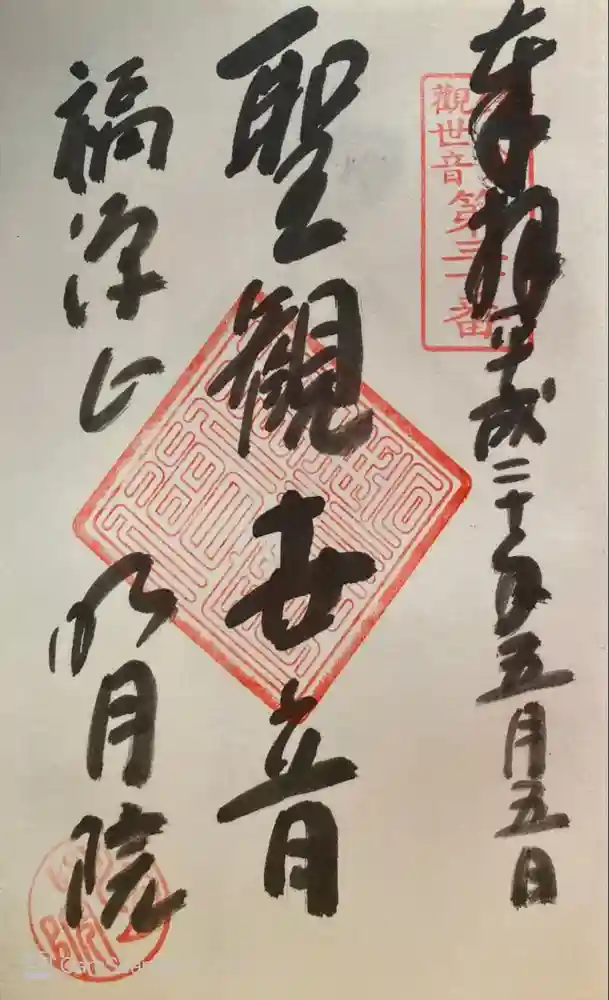 奉拝 平成二十年五月五日
觀世音第三十番
聖觀世音
福源山 明月院